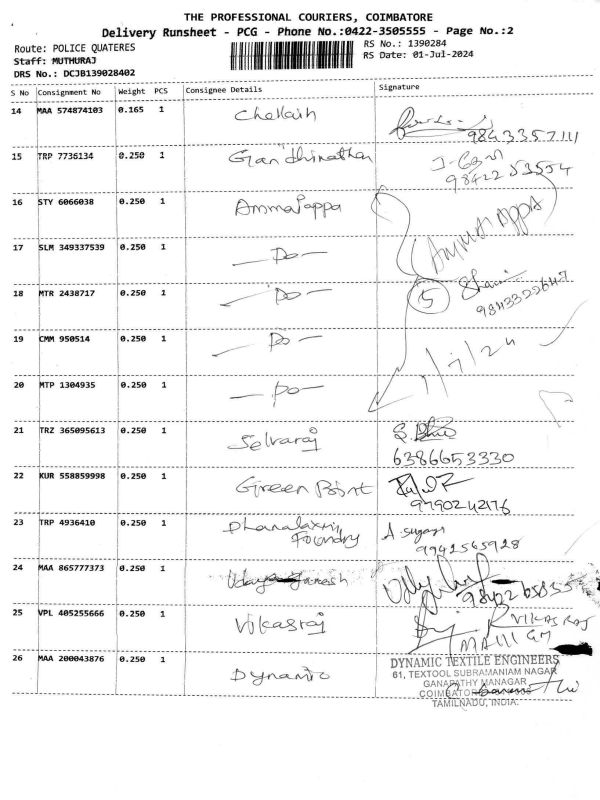 THE PROFESSIONAL COURIERS, COIMBATORE
Delivery Runsheet - PCG - Phone No.:0422-3505555 - Page No.:2
Route: POLICE QUATERES
RS No.: 1390284
Staff: MUTHURAJ
RS Date: 01-Jul-2024
DRS No.: DCJB139028402
S No Consignment No Weight PCS Consignee Details Signature
14 MAA 574874103 0.165 1 Chellaih
9843357111
15 TRP 7736134 0.250 1 Gandhinathan
98422 53554
16 STY 6066038 0.250 1 Ammalappa
17 SLM 349337539 0.250 1 - Do -
18 MTR 2438717 0.250 1 - Do - 5
9843322647
19 CMM 950514 0.250 1 - Do -
1/7/24
20 MTP 1304935 0.250 1 - Do -
21 TRZ 365095613 0.250 1 Selvaraj
6386653330
22 KUR 558859998 0.250 1 Green Point
9790242176
23 TRP 4936410 0.250 1 Dhanalaxmi
Foundry
A Sugany
9942565928
24 MAA 865777373 0.250 1 Udaya Ganesh
25 VPL 405255666 0.250 1 Vikasraj
VIKAS RAJ
26 MAA 200043876 0.250 1 Dynamic
DYNAMIC TEXTILE ENGINEERS
61, TEXTOOL SUBRAMANIAM NAGAR
GANAPATHY MANAGAR
TAMILNADU, INDIA.